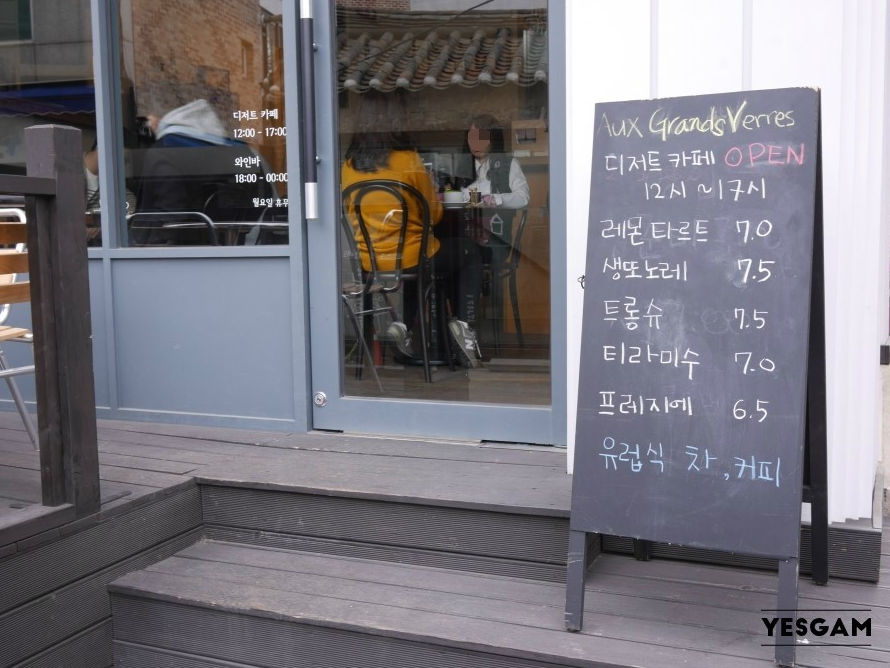 디저트 카페
12:00 - 17:00
와인바
18:00 - 00:00
월요일 휴무
Aux Grands Verres
디저트 카페 OPEN
12시 ~ 17시
레몬 타르트 7.0
생또노레 7.5
트롱슈 7.5
티라미수 7.0
프레지에 6.5
유럽식 차, 커피
YESGAM